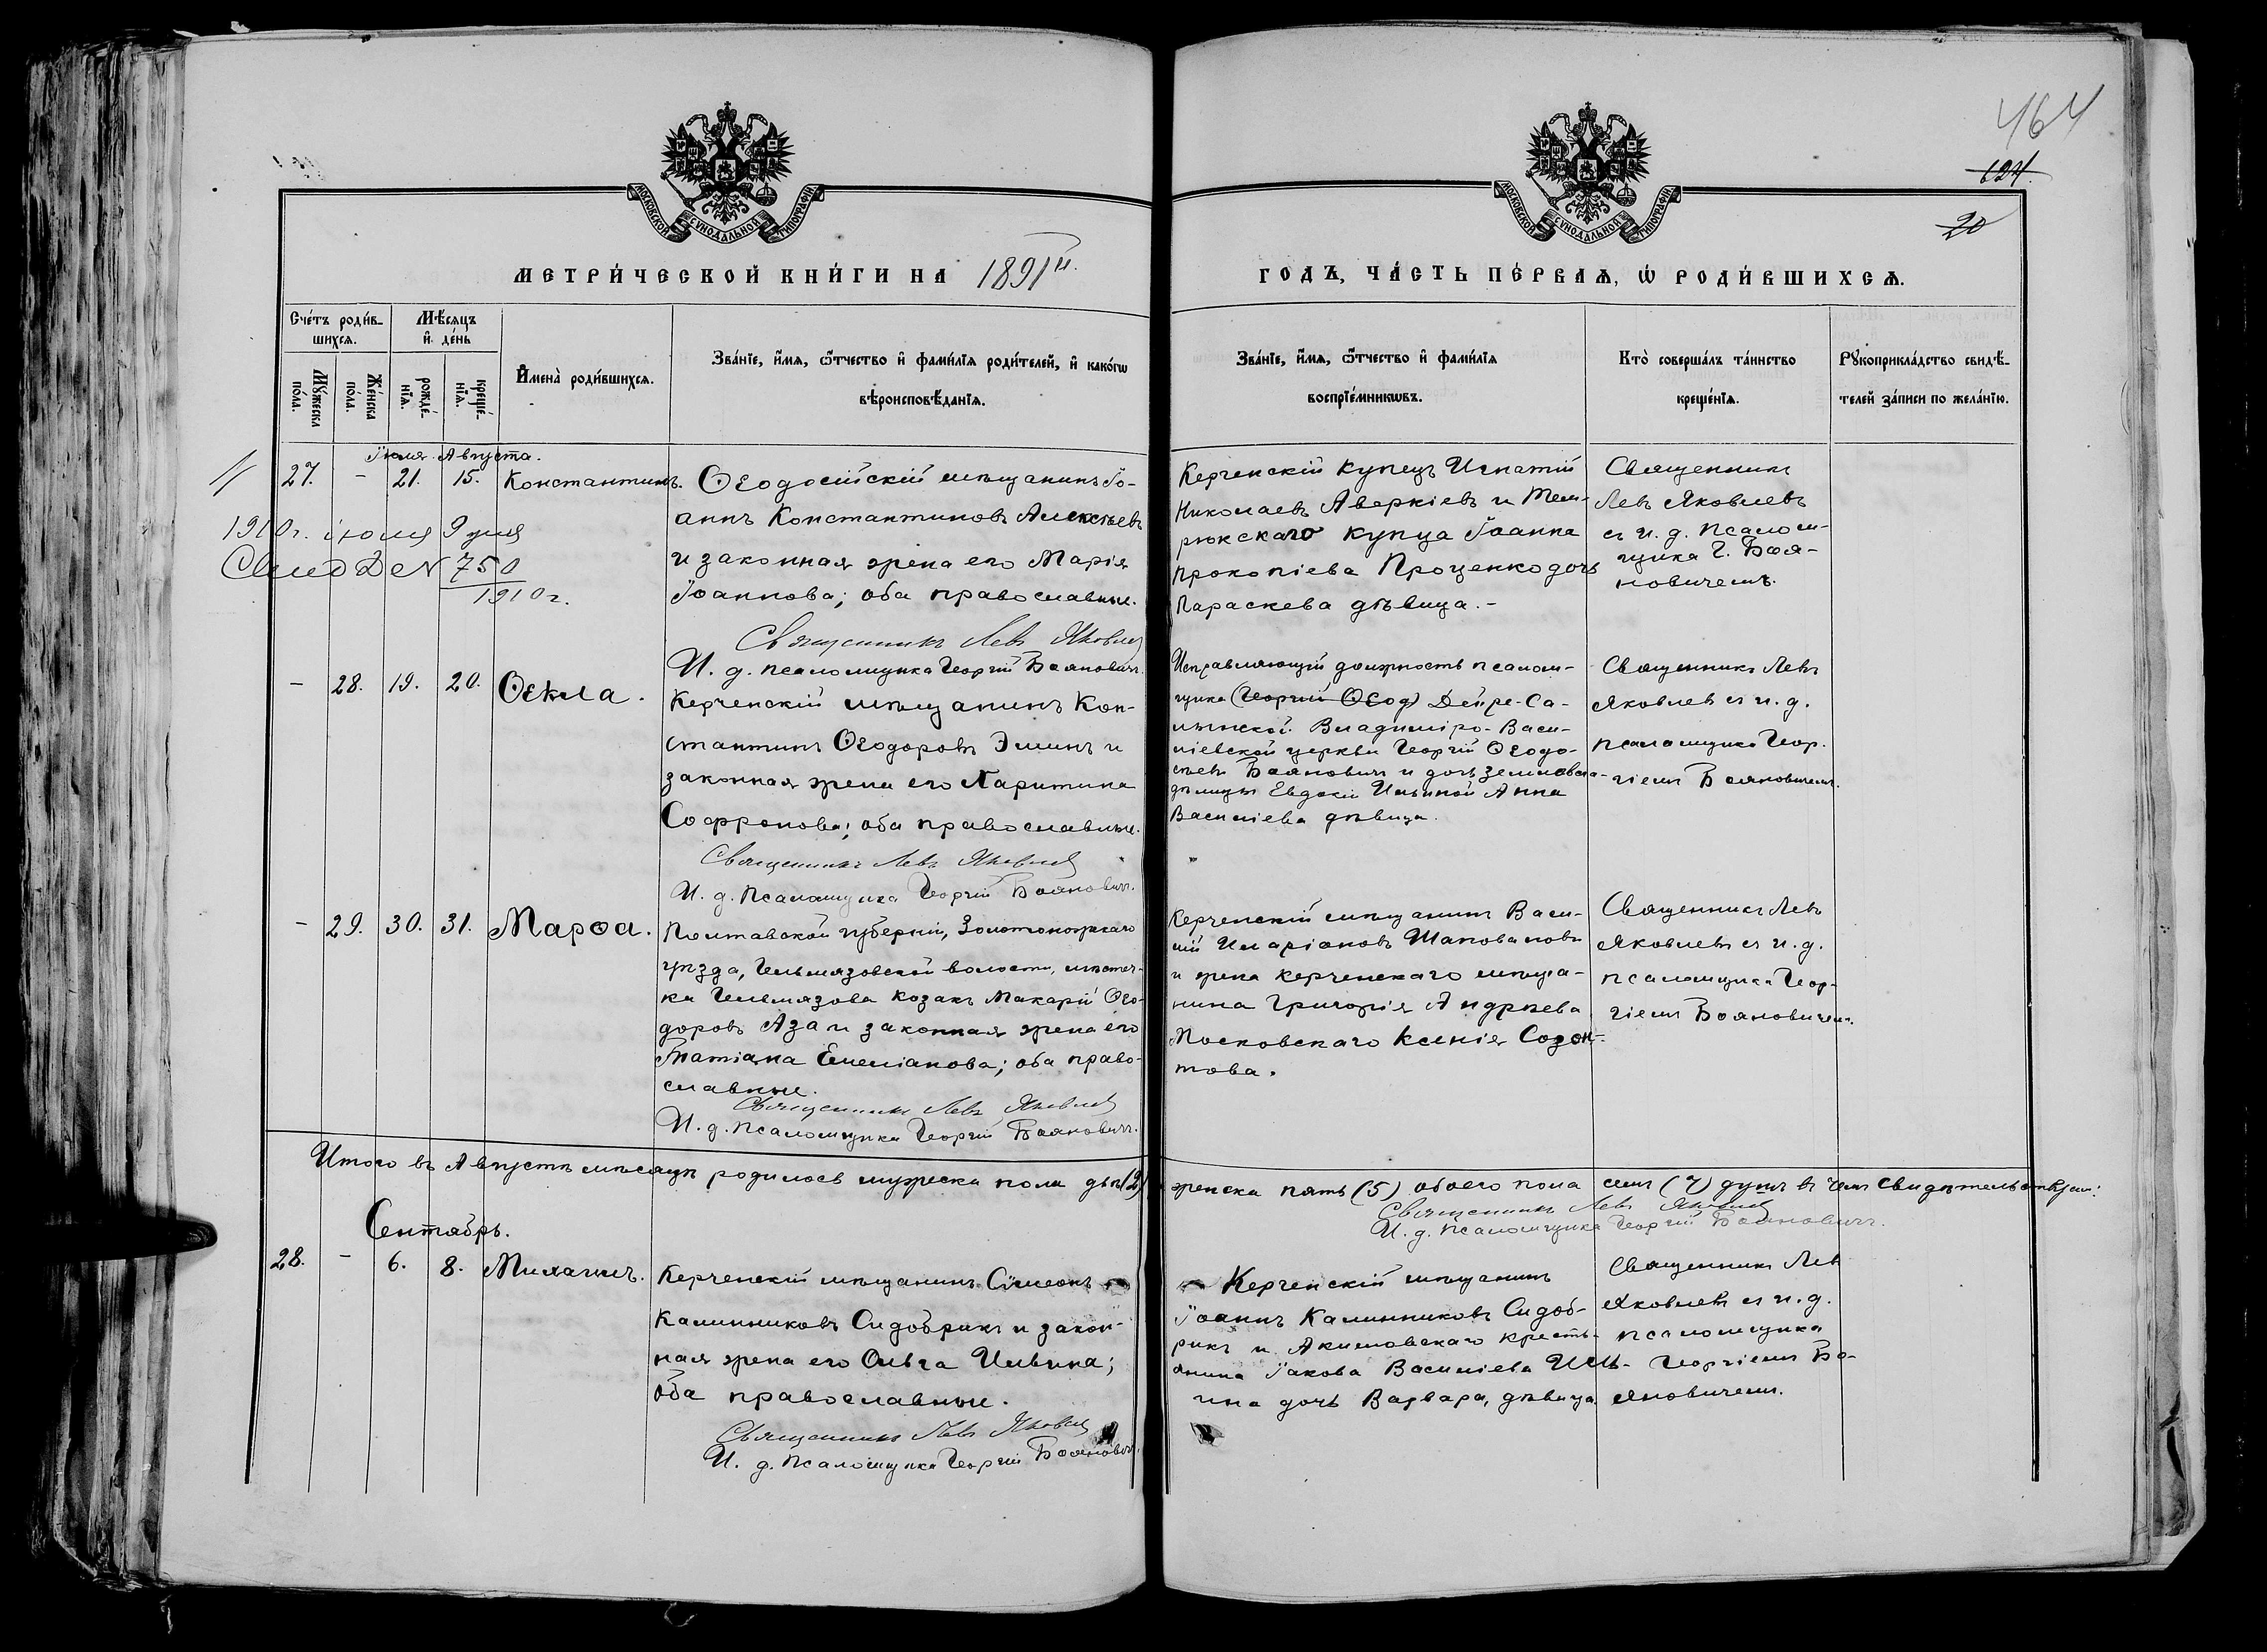 464
124.
20
МОСКОВСКОЙ СѴНОДАЛЬНОЙ ТИПОГРАФІИ
МОСКОВСКОЙ СѴНОДАЛЬНОЙ ТИПОГРАФІИ
МЕТРИ́ЧЕСКОЙ КНИ́ГИ НА 1891й.
ГОДЪ, ЧА́СТЬ ПЕ́РВАѦ, Ѡ҆ РОДИ́ВШИХСѦ.
Сче́тъ роди́в-
шихсѧ.
Мѣ́сѧцъ
и҆ де́нь
Мꙋ́жеска
по́ла.
Же́нска
по́ла.
рожде́-
нїѧ.
креще́-
нїѧ.
И҆мена̀ роди́вшихсѧ.
Зва́нїе, и҆́мѧ, ѻ҆́тчество и҆ фами́лїѧ роди́телей, и҆ како́гѡ
вѣроисповѣ́данїѧ.
Зва́нїе, и҆́мѧ, ѻ҆́тчество и҆ фами́лїѧ
воспрїе́мникѡвъ.
Кто̀ соверша́лъ та́инство
креще́нїѧ.
Рꙋкоприкла́дство свидѣ́-
телей за́писи по жела́нїю.
Іюля. Августа.
27. - 21. 15. Константинъ.
1910г. іюля 9 дня
Свид De N 750
1910г.
Ѳеодосійскій мѣщанинъ Іо-
аннъ Константиновъ Алексѣевъ
и законная жена его Марія
Іоаннова; оба православные.
Священникъ Левъ Яковлев
И. д. псаломщика Георгій Бояновичъ.
Керченскій купецъ Игнатій
Николаевъ Аверкіевъ и Тем-
рюкскаго купца Іоанна
Прокопіева Проценко дочь
Параскева дѣвица. -
Священникъ
Левъ Яковлевъ
съ и. д. псалом-
щика Г. Боя-
новичемъ.
- 28. 19. 20. Ѳекла.
Керченскій мѣщанинъ Кон-
стантинъ Ѳеодоровъ Эминъ и
законная жена его Харитина
Софронова; оба православные.
Священникъ Левъ Яковлев
И. д. псаломщика Георгій Бояновичъ.
Исправляющій должность псалом-
щика (Георгій Ѳеод) Дейре-Са-
лынской Владиміро-Васи-
ліевской церкви Георгій Ѳеодо-
сьевъ Бояновичъ и дочь землевла-
дѣлицы Евдокіи Ильиной Анна
Василіева дѣвица.
Священникъ Левъ
Яковлевъ съ и. д.
псаломщика Геор-
гіемъ Бояновичемъ.
- 29. 30. 31. Марѳа.
Полтавской губерніи, Золотоношскаго
уѣзда, Гельмязовской волости, мѣстеч-
ка Гельмязова козакъ Макарій Ѳео-
доровъ Аза и законная жена его
Татіана Емеліанова; оба право-
славные.
Священникъ Левъ Яковлев
И. д. псаломщика Георгій Бояновичъ.
Керченскій мѣщанинъ Васи-
лій Иларіоновъ Шаповаловъ
и жена керченскаго мѣща-
нина Григорія Андреева
Московскаго Ксенія Созон-
това.
Священникъ Левъ
Яковлевъ съ и. д.
псаломщика Геор-
гіемъ Бояновичемъ.
Итого въ Августѣ мѣсяцѣ родилось мужеска пола два (2) женска пять (5) обоего пола семь (7) душъ въ чемъ свидѣтельствуемъ:
Священникъ Левъ Яковлев
И. д. псаломщика Георгій Бояновичъ.
Сентябрь.
28. - 6. 8. Михаилъ.
Керченскій мѣщанинъ Сімеонъ
Калинниковъ Сидобрикъ и закон-
ная жена его Ольга Ильина;
оба православные.
Священникъ Левъ Яковлев
И. д. псаломщика Георгій Бояновичъ.
Керченскій мѣщанинъ
Іоаннъ Калинниковъ Сидоб-
рикъ и Акимовскаго кресть-
янина Іакова Василіева Иль-
ина дочь Варвара, дѣвица.
Священникъ Лев
Яковлевъ съ и. д.
псаломщика
Георгіемъ Бо-
яновичемъ.